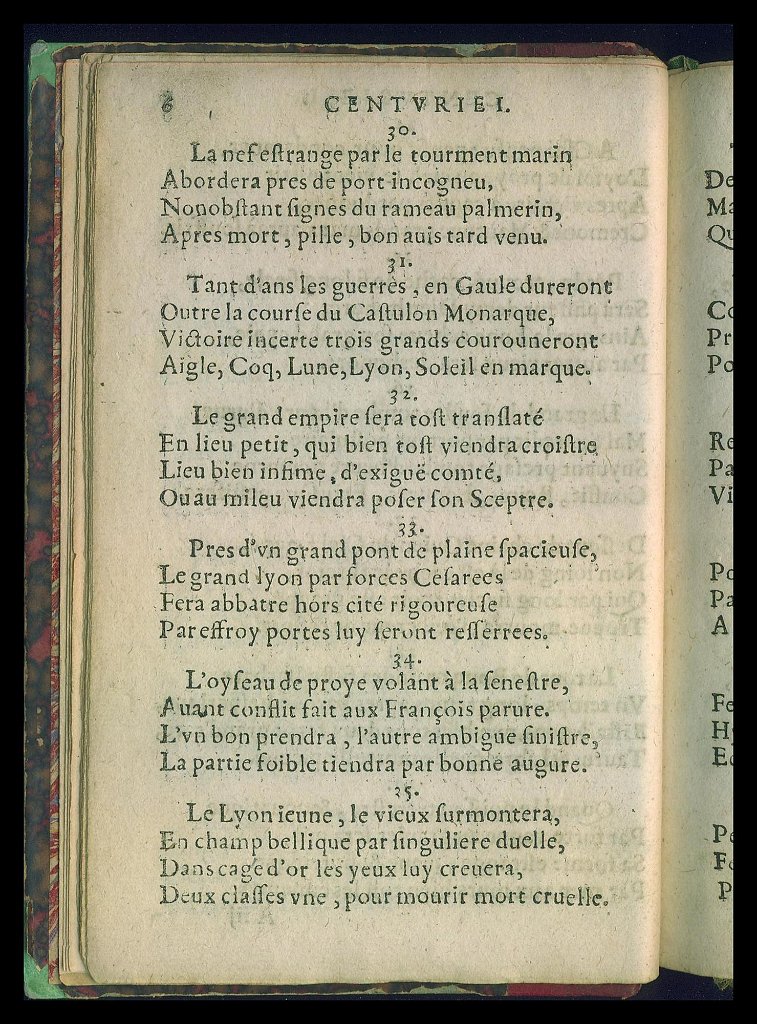 6 CENTVRIE I.
30.
La nef eſtrange par le tourment marin
Abordera pres de port incogneu,
Nonobſtant ſignes du rameau palmerin,
Apres mort, pille, bon auis tard venu.
31.
Tant d'ans les guerres, en Gaule dureront
Outre la courſe du Caſtulon Monarque,
Victoire incerte trois grands courouneront
Aigle, Coq, Lune, Lyon, Soleil en marque.
32.
Le grand empire ſera toſt tranſlaté
En lieu petit, qui bien toſt viendra croiſtre
Lieu bien infime, d'exiguë comté,
Ou au mileu viendra poſer ſon Sceptre.
33.
Pres d'vn grand pont de plaine ſpacieuſe,
Le grand lyon par forces Ceſarees
Fera abbatre hors cité rigoureuſe
Par effroy portes luy ſeront reſſerrees.
34.
L'oyſeau de proye volant à la ſeneſtre,
Auant conflit fait aux François parure.
L'vn bon prendra, l'autre ambigue ſiniſtre,
La partie foible tiendra par bonne augure.
35.
Le Lyon ieune, le vieux ſurmontera,
En champ bellique par ſinguliere duelle,
Dans cage d'or les yeux luy creuera,
Deux claſſes vne, pour mourir mort cruelle.
De
Ma
Qu
Co
Pr
Po
Re
Pa
Vi
Po
Pa
A
Fe
Hy
Ec
Pe
Fe
P